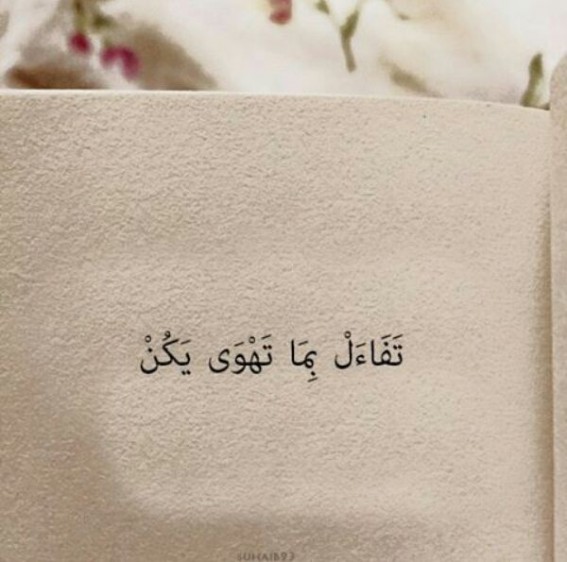 تَفَاءَلْ بِمَا تَهْوَى يَكُنْ
SUHAIB93